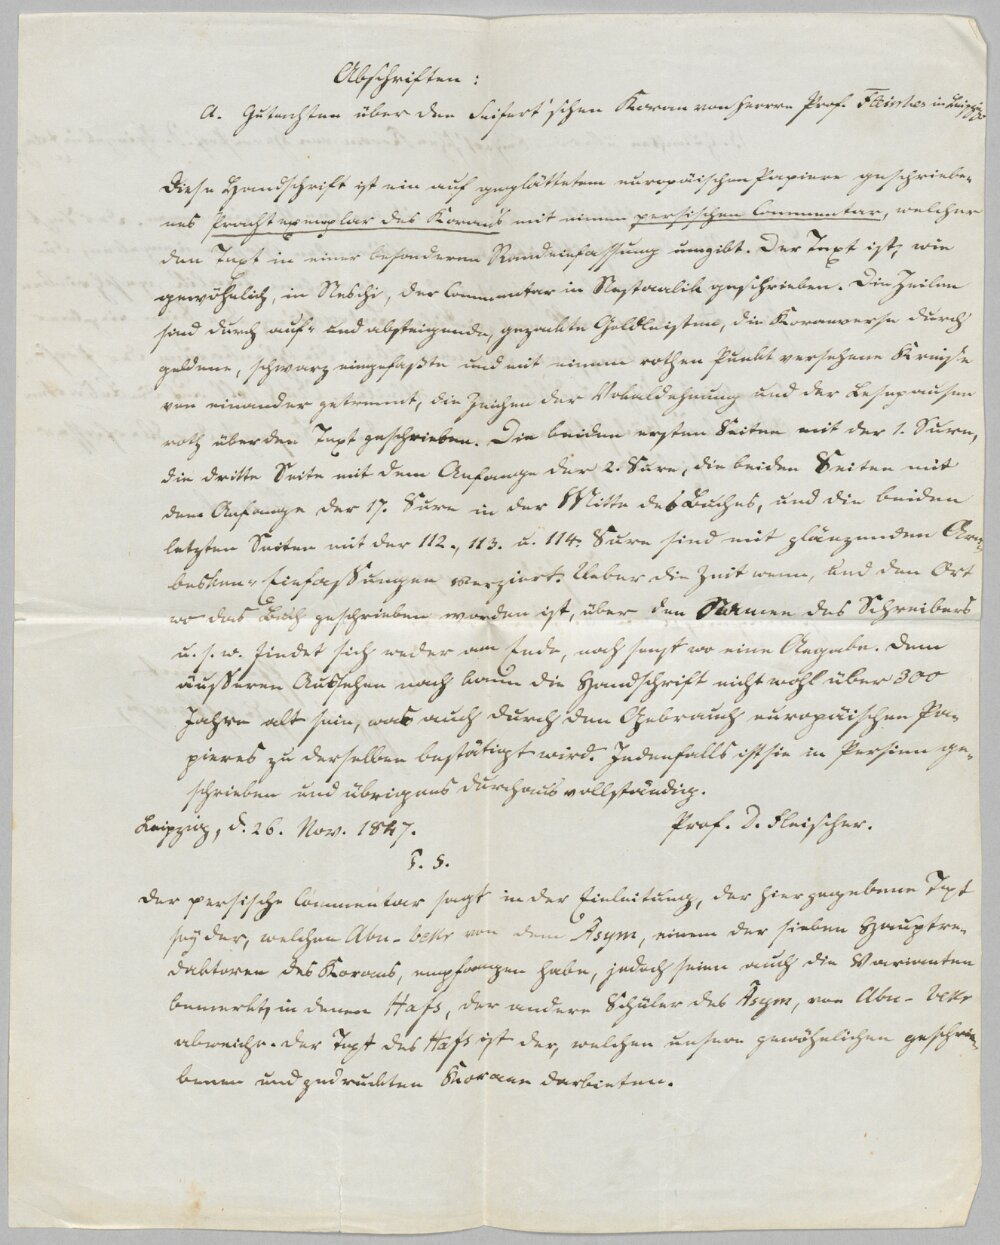 Abschriften:
A. Gutachten über den Seifert'schen Koran von Herrn Prof. Fleischer in Leipzig
Diese Handschrift ist ein auf geglättetem europäischen Papiere geschriebe-
nes Prachtexemplar des Korans mit einem persischen Commentar, welcher
den Text in einer besonderen Randeinfassung umgibt. Der Text ist, wie
gewöhnlich, in Neschi, der Commentar in Nestaalik geschrieben. Die Zeilen
sind durch auf- und absteigende, gezackte Goldleisten, die Koranverse durch
goldene, schwarz eingefaßte und mit einem rothen Punkt versehene Kreise
von einander getrennt, die Zeichen der Vokaldehnung und der Lesepausen
roth über den Text geschrieben. Die beiden ersten Seiten mit der 1. Sure,
die dritte Seite mit dem Anfange der 2. Sure, die beiden Seiten mit
dem Anfange der 17. Sure in der Mitte des Buches, und die beiden
letzten Seiten mit der 112., 113. u. 114. Sure sind mit glänzenden Ara-
besken-Einfassungen verziert. Ueber die Zeit wenn, und den Ort
wo das Buch geschrieben worden ist, über den Namen des Schreibers
u. s. w. findet sich weder am Ende, noch sonst wo eine Angabe. Dem
äusseren Aussehen nach kann die Handschrift nicht wohl über 300
Jahre alt sein, was auch durch den Gebrauch europäischen Pa-
pieres zu derselben bestätigt wird. Jedenfalls ist sie in Persien ge-
schrieben und übrigens durchaus vollständig.
Leipzig, d. 26. Nov. 1847.
Prof. D. Fleischer.
P. S.
Der persische Commentar sagt in der Einleitung, der hier gegebene Text
sey der, welchen Abu-bekr von dem Âsym, einem der sieben Hauptre-
daktoren des Korans, empfangen habe, jedoch seien auch die Varianten
bemerkt, in denen Hafs, der andere Schüler des Âsym, von Abu-bekr
abweiche. Der Text des Hafs ist der, welchen unsere gewöhnlichen geschrie-
benen und gedruckten Korane darbieten.